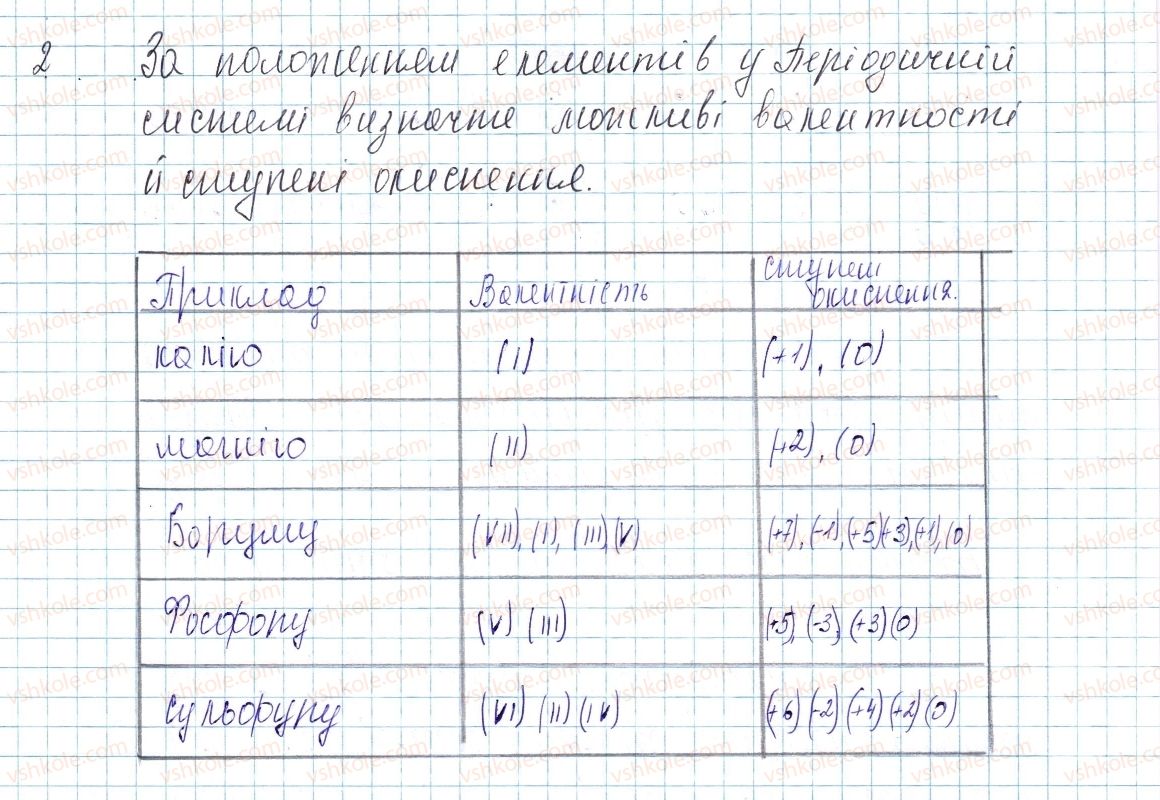 2. За положенням елементів у Періодичній
системі визначте можливі валентності
й ступені окиснення.
Приклад Валентність ступені окиснення.
калію (I) (+1), (0)
магнію (II) (+2), (0)
(VII), (I), (III), (V) (+7), (-1), (+5), (+3), (+1), (0)
Фосфору (V) (III) (+5), (-3), (+3) (0)
сульфуру (VI) (II) (IV) (+6) (-2) (+4) (+2) (0)
vshkole.com